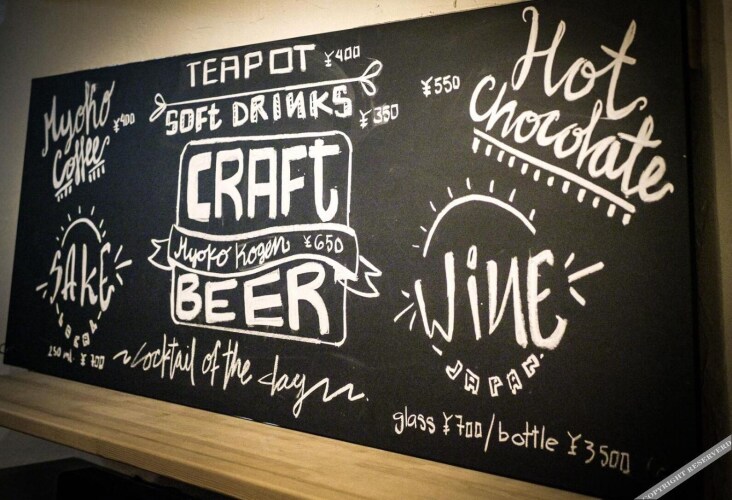 Myoko
Coffee
¥400
TEAPOT ¥400
SOFT DRINKS ¥350
¥550
Hot
Chocolate
CRAFT
Myoko Kogen ¥650
BEER
SAKE
250 ml ¥700
~cocktail of the day~
WINE
JAPAN
glass ¥700/bottle ¥3500
COPYRIGHT RESERVED